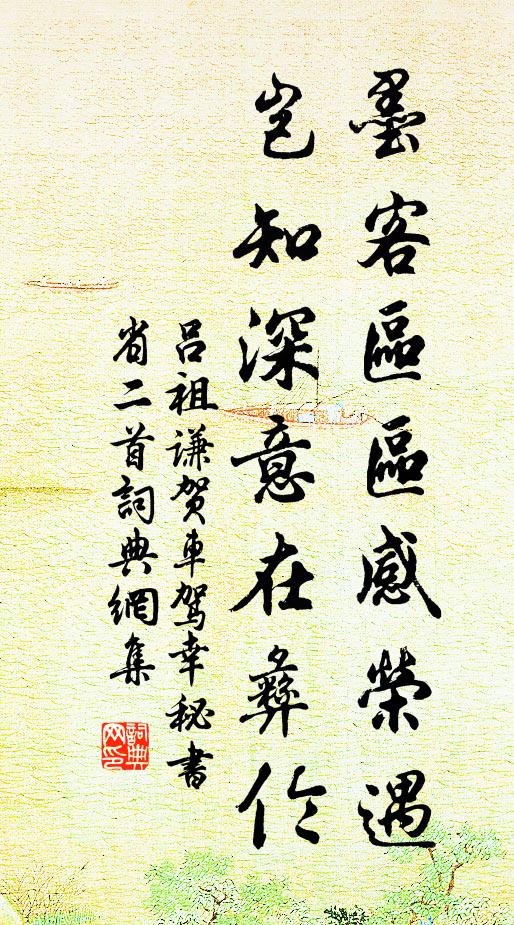 墨客區區感榮遇
岂知深意在彝伦
呂祖謙贺車驾幸秘書
省二首詞典網集
詞典
网印